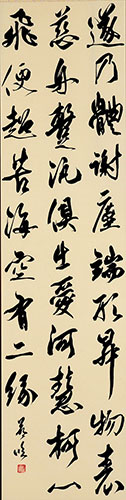 遂乃體謝塵端形昇物表
慈舟暫汎俱生愛河慧
飛便超苦海空有二緣